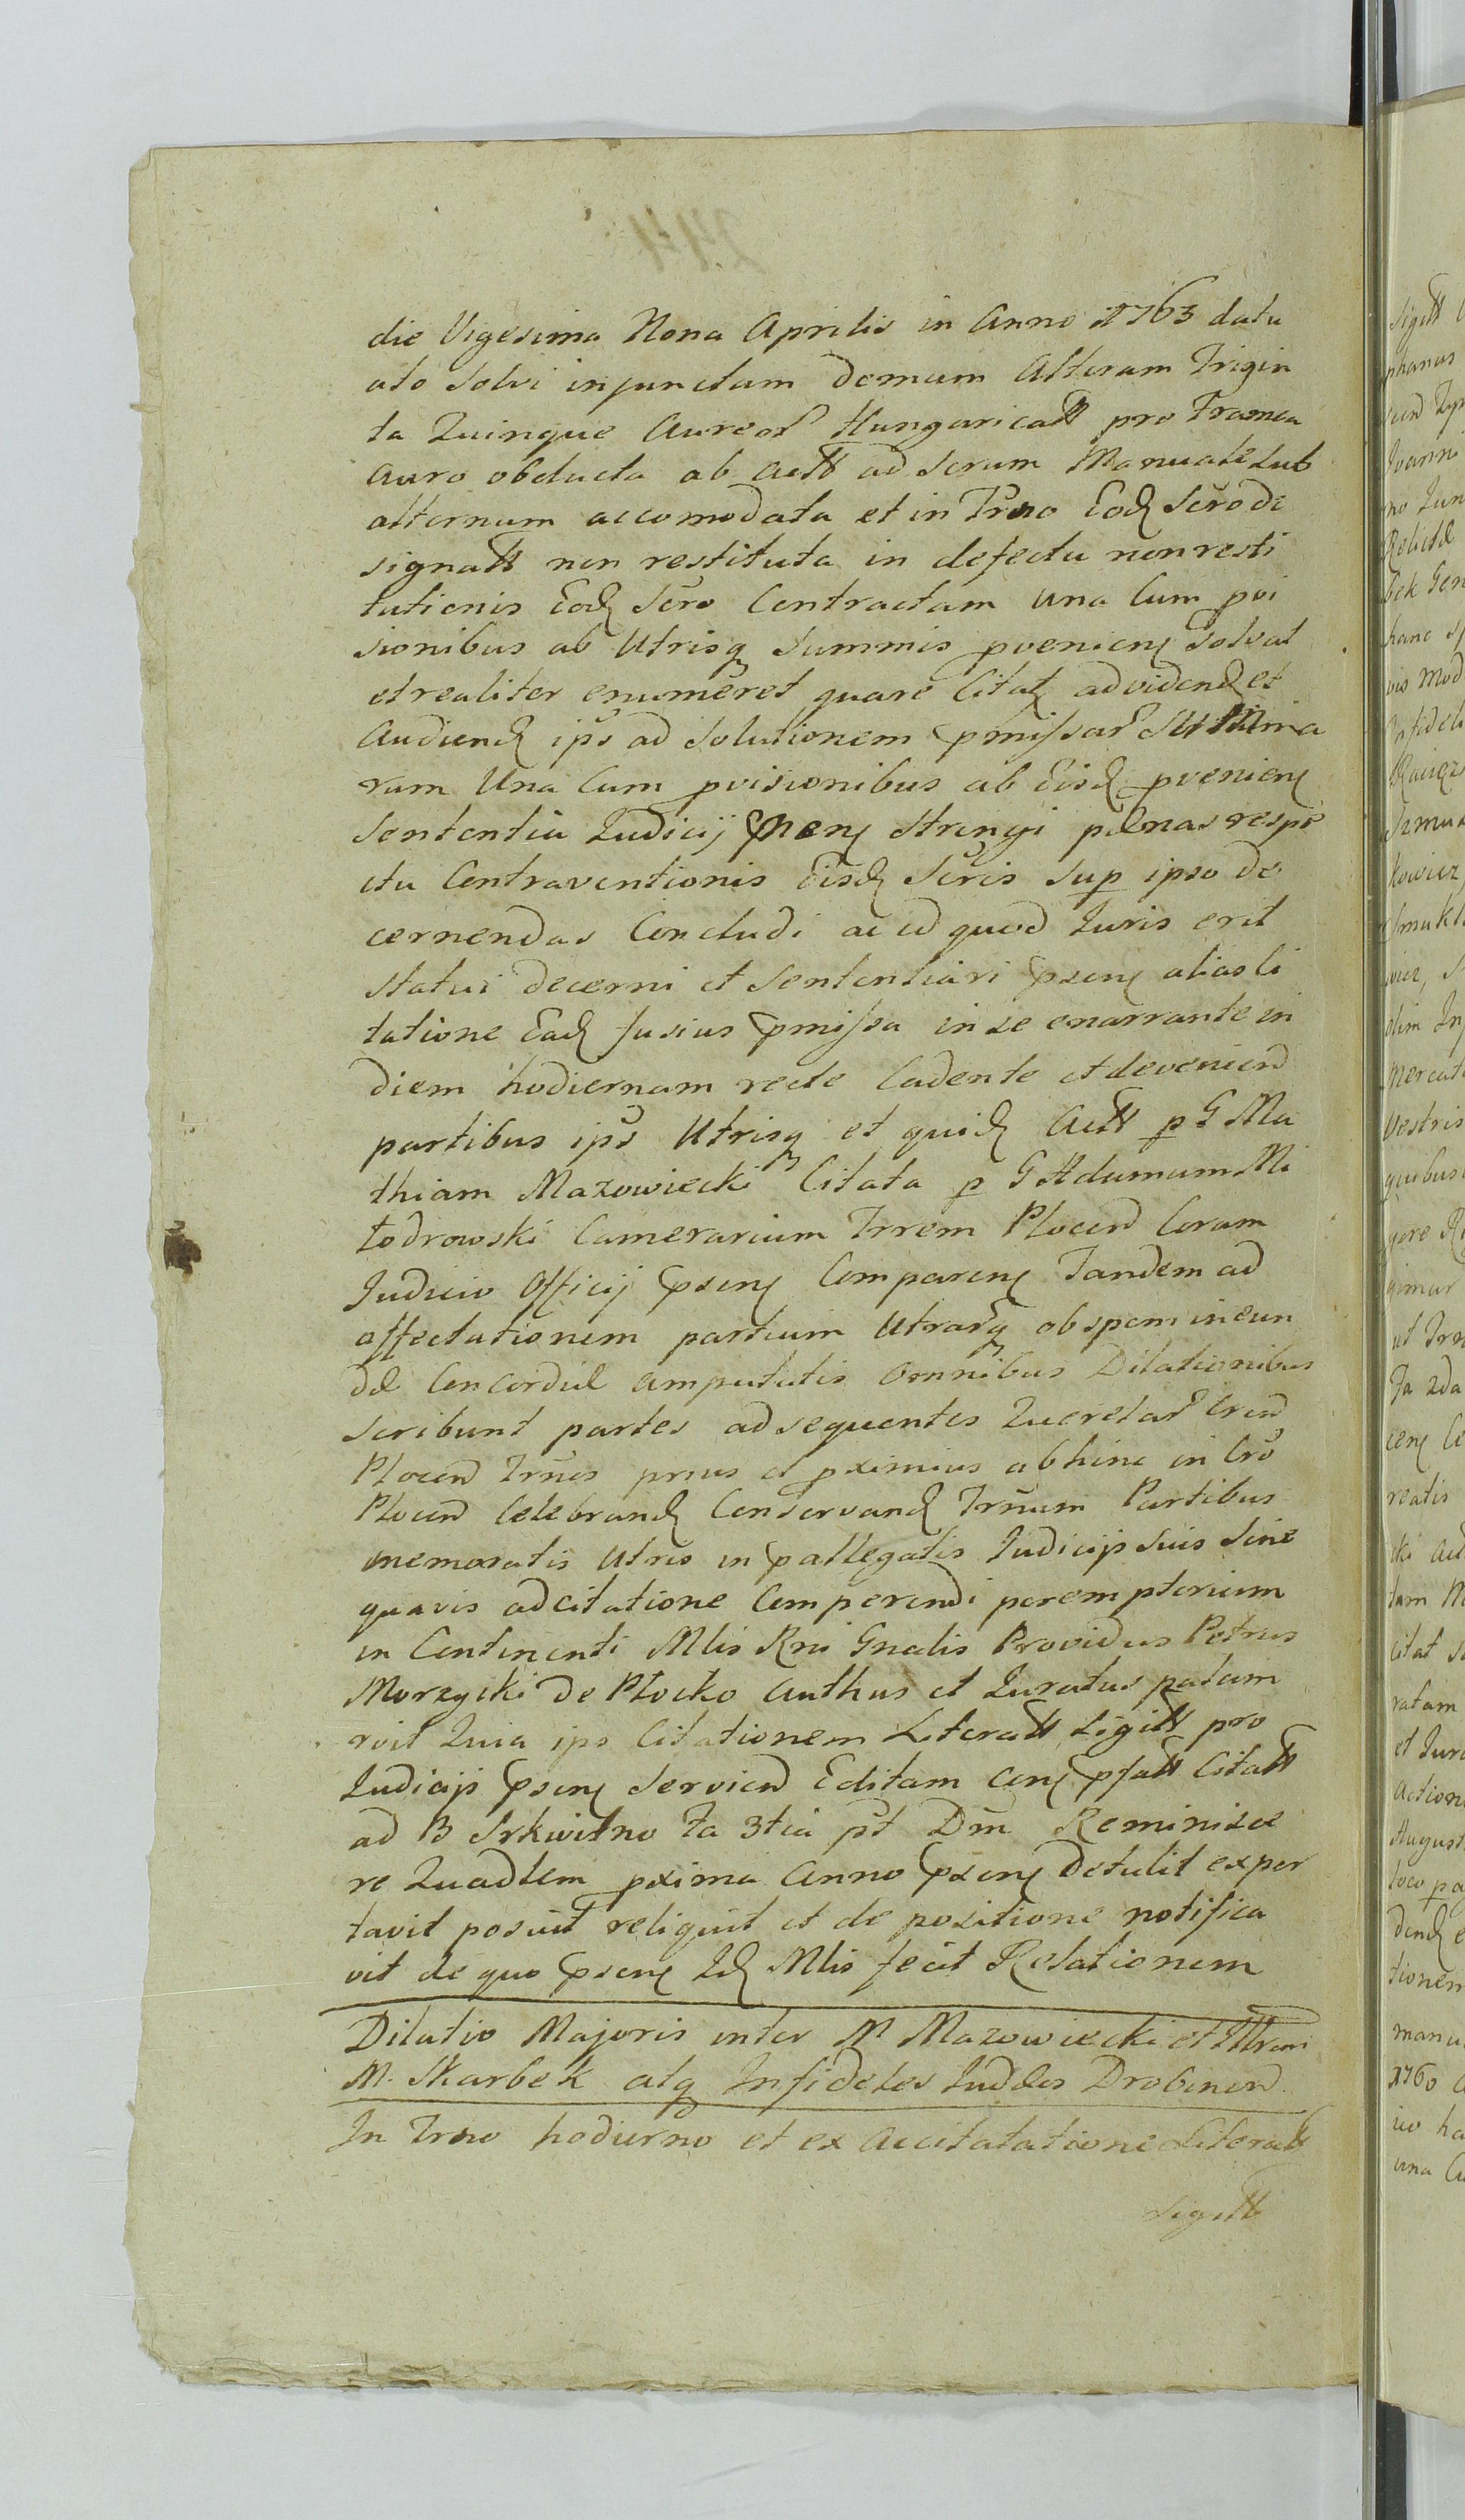 die Vigesima Nona Aprilis in Anno 1763 datu
ato Solvi injunctam demum Alteram Trigin
ta Quinque Aureor Hungaricall pro Framea
Auro obducta ab Actt ad Scrum Manuale Sub
alternum accomodata et in Trno Eod Scro de
signatt non restituta in defectu nonresti
tutionis Eod Scro Contractam una Cum pvi
sionibus ab Utrisq Summis pvenien Solvat
et realiter enumeret quare Citat ad vidend et
Audiend ips ad Solutionem pmissar Summa
rum Una Cum pvisionibus ab Eisd pvenien
Sententia Judicij pnen Stringi pænas respe
ctu Contraventionis Eisd Scris Sup ipso de
cernendas Concludi ac id quod Juris erit
Statui decerni et Sententiari psen alias Ci
tatione Ead fusius pmissa in se enarrante in
diem hodiernam recte Cadente et devenien
partibus ips Utrisq et quid Actt p G Ma
thiam Mazowiecki Citata p G Adumum Mi
łodrowski Camerarium Trrem Plocen Coram
Judicio Officij psen Comparen Tandem ad
affectationem partium Utrarq ob spem ineun
dæ Concordiæ amputatis omnibus Dilationibus
scribunt partes ad sequentes Querelar Cren
Plocen Trnos prius et pximius abhinc in Cro
Plocen Celebrand Conservand Trnum Partibus
memoratis Utris in pallegatis Judicijs suis Sine
quavis adcitatione Comperendi peremptorium
in Continenti Mlis Rni Gnalis Providus Petrus
Morzycki de Płocko Authus et Juratus palam
rvit Quia ips Citationem Literatt Sigitt pro
Judicijs psen Servien Editam Cen pfatt Citatt
ad B Srkwitno fa 3tia pt Dm Reminisce
re Quadlem pxima Anno psen Detulit expor
tavit posuit reliquit et de positione notifica
vit de quo psen Id Mlis fecit Relationem
Dilatio Majoris inter M Mazowiecki et
M. Skarbek atq Infideles Judæos Drobinen
In Trno hodierno et ex Accitatatione Literatt
Sigitt